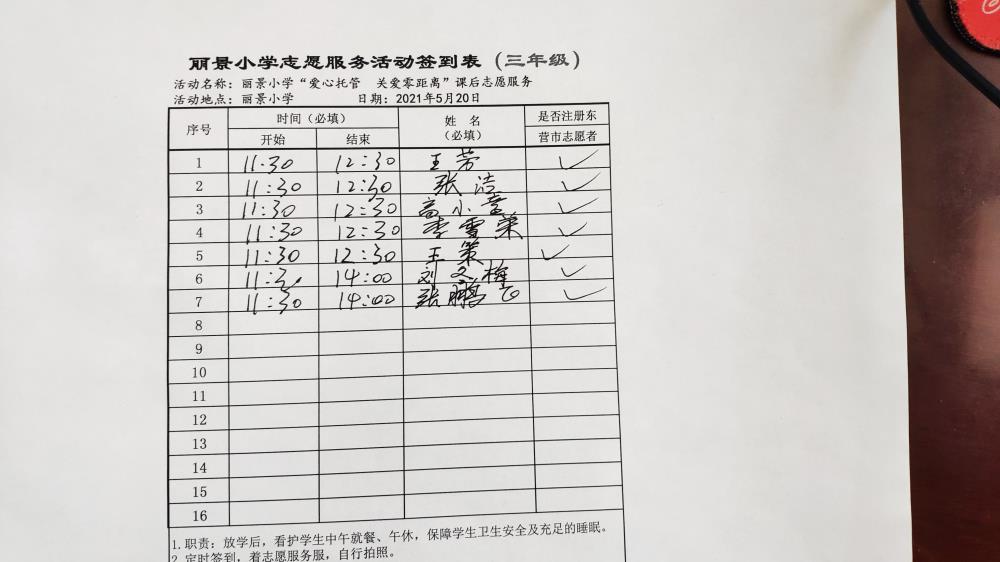 丽景小学志愿服务活动签到表（三年级）
活动名称：丽景小学“爱心托管 关爱零距离”课后志愿服务
活动地点：丽景小学 日期：2021年5月20日
序号 时间（必填） 姓 名（必填） 是否注册东营市志愿者
开始 结束
1 11:30 12:30 王芳 ✓
2 11:30 12:30 张洁 ✓
3 11:30 12:30 高小 ✓
4 11:30 12:30 李雪荣 ✓
5 11:30 12:30 王策 ✓
6 11:3 14:00 刘文梅 ✓
7 11:30 14:00 张鹏飞 ✓
8
9
10
11
12
13
14
15
16
1.职责：放学后，看护学生中午就餐、午休，保障学生卫生安全及充足的睡眠。
2.定时签到，着志愿服务服，自行拍照。